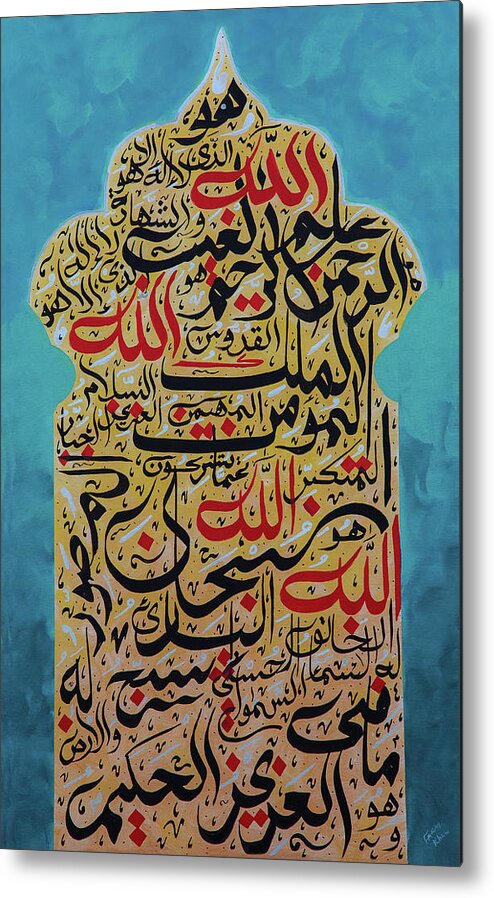 هو
الله الذى لا اله الا هو
علم الغيب والشهادة
هو الرحمن الرحيم
هو الله الذى لا اله الا هو
الملك القدوس السلام
المومن المهيمن العزيز الجبار
المتكبر
سبحان الله عما يشركون
هو الله الخالق
البارئ المصور
له الاسماء الحسنى
يسبح له
ما فى السموات والارض
وهو العزيز الحكيم